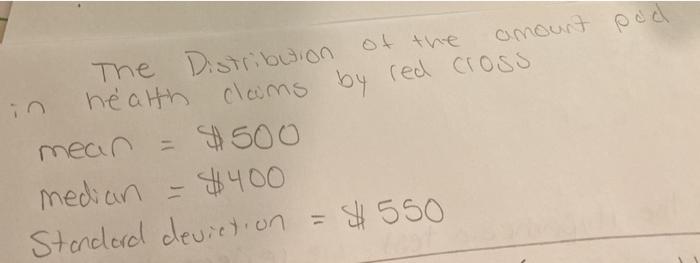 The Distribution of the amount paid
in health claims by red cross
mean = $500
median = $400
Standard deviation = $550